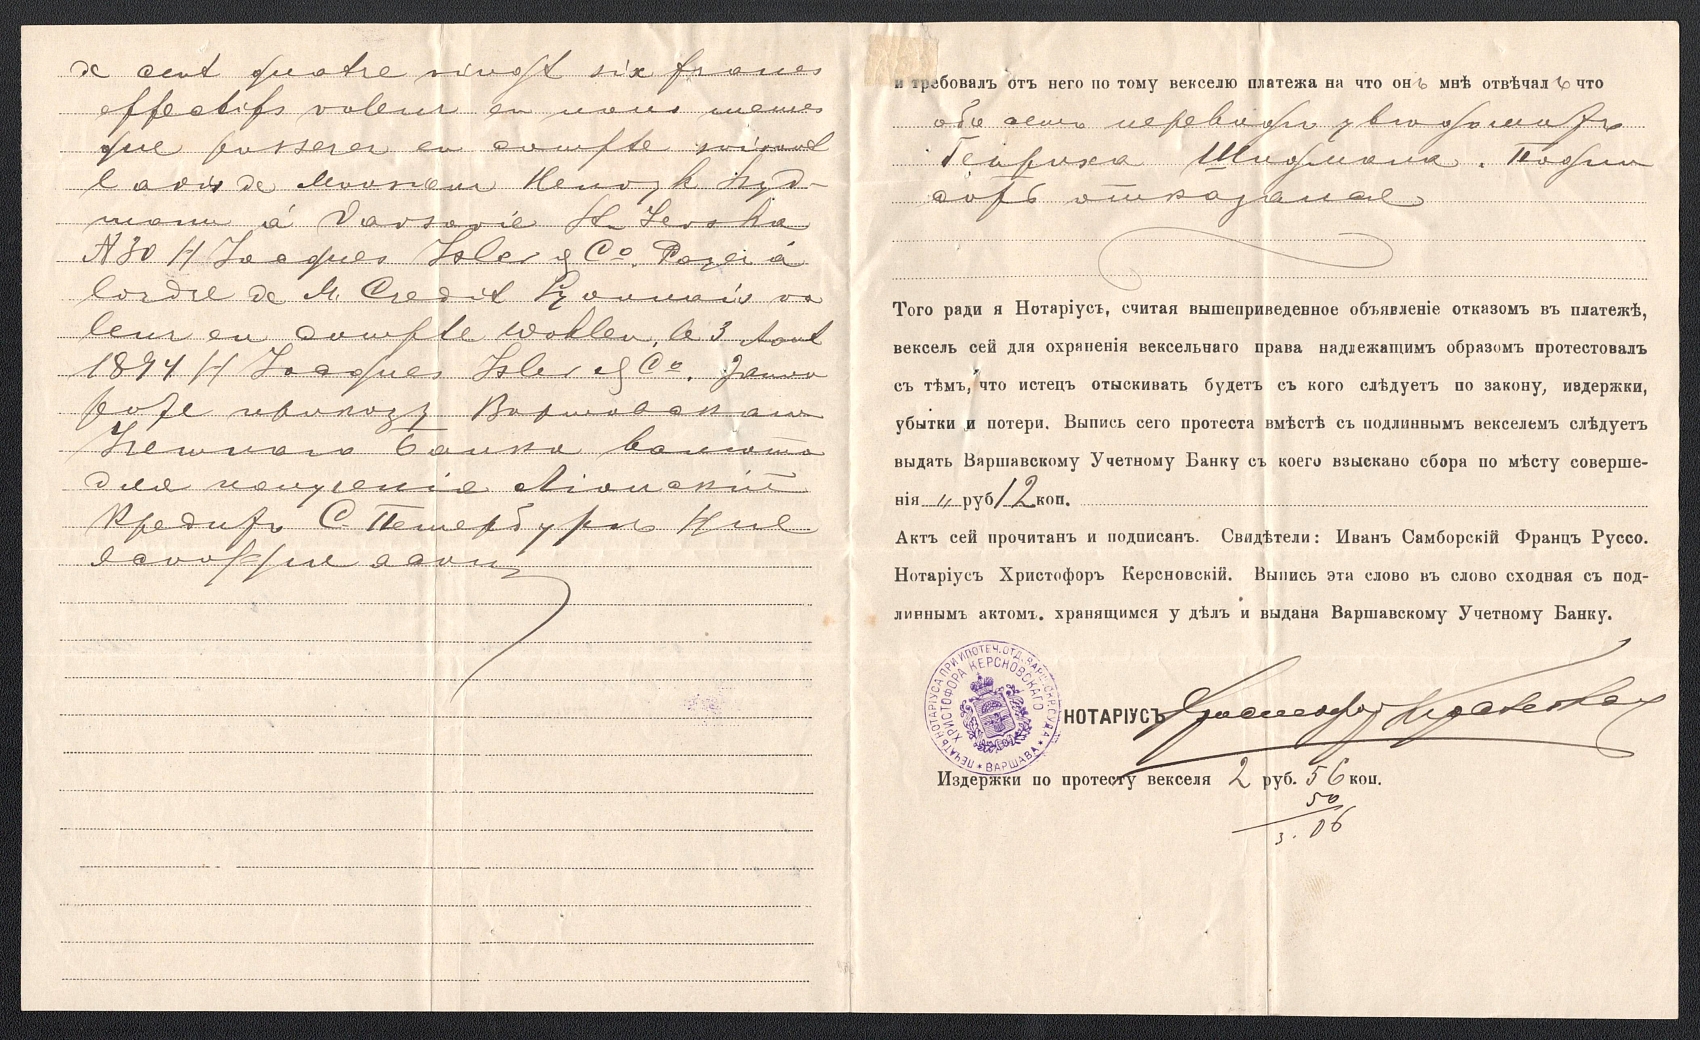 de cent quatre vingt six francs
effectifs valeur en nous memes
que passerez en compte suivant
l avis de Monsieur Henryk Szyd-
mann á Varsovie
N 30 H Jacques Isler & Co. Payez á
lordre de M. Credit Lyonnais va
leur en compte Wohlen, le 3 Aout
1894 H Jacques Isler & Co.
приказу Варшавскаго
Учетнаго Банка валюта
для полученія Ліонскій
Кредитъ С. Петербургъ
и требовалъ отъ него по тому векселю платежа на что онъ мнѣ отвѣчалъ что
объ семъ переводѣ увѣдомитъ
Генриха Шидмана. Подпи
сать отказался
Того ради я Нотаріусъ, считая вышеприведенное объявленіе отказомъ въ платежѣ,
вексель сей для охраненія вексельнаго права надлежащимъ образомъ протестовалъ
съ тѣмъ, что истецъ отыскивать будетъ съ кого слѣдуетъ по закону, издержки,
убытки и потери. Выпись сего протеста вмѣстѣ съ подлиннымъ векселемъ слѣдуетъ
выдать Варшавскому Учетному Банку съ коего взыскано сбора по мѣсту соверше-
нія „ руб 12 коп.
Актъ сей прочитанъ и подписанъ. Свидѣтели: Иванъ Самборскій Францъ Руссо.
Нотаріусъ Христофоръ Керсновскій. Выпись эта слово въ слово сходная съ под-
линнымъ актомъ. хранящимся у дѣлъ и выдана Варшавскому Учетному Банку.
ПЕЧАТЬ НОТАРІУСА ПРИ ИПОТЕЧ. ОТД. ВАРШ. ОКР. СУДА * ВАРШАВА *
ХРИСТОФОРА КЕРСНОВСКАГО
НОТАРІУСЪ Христофоръ Керсновскій
Издержки по протесту векселя 2 руб. 56 коп.
50
3. 06